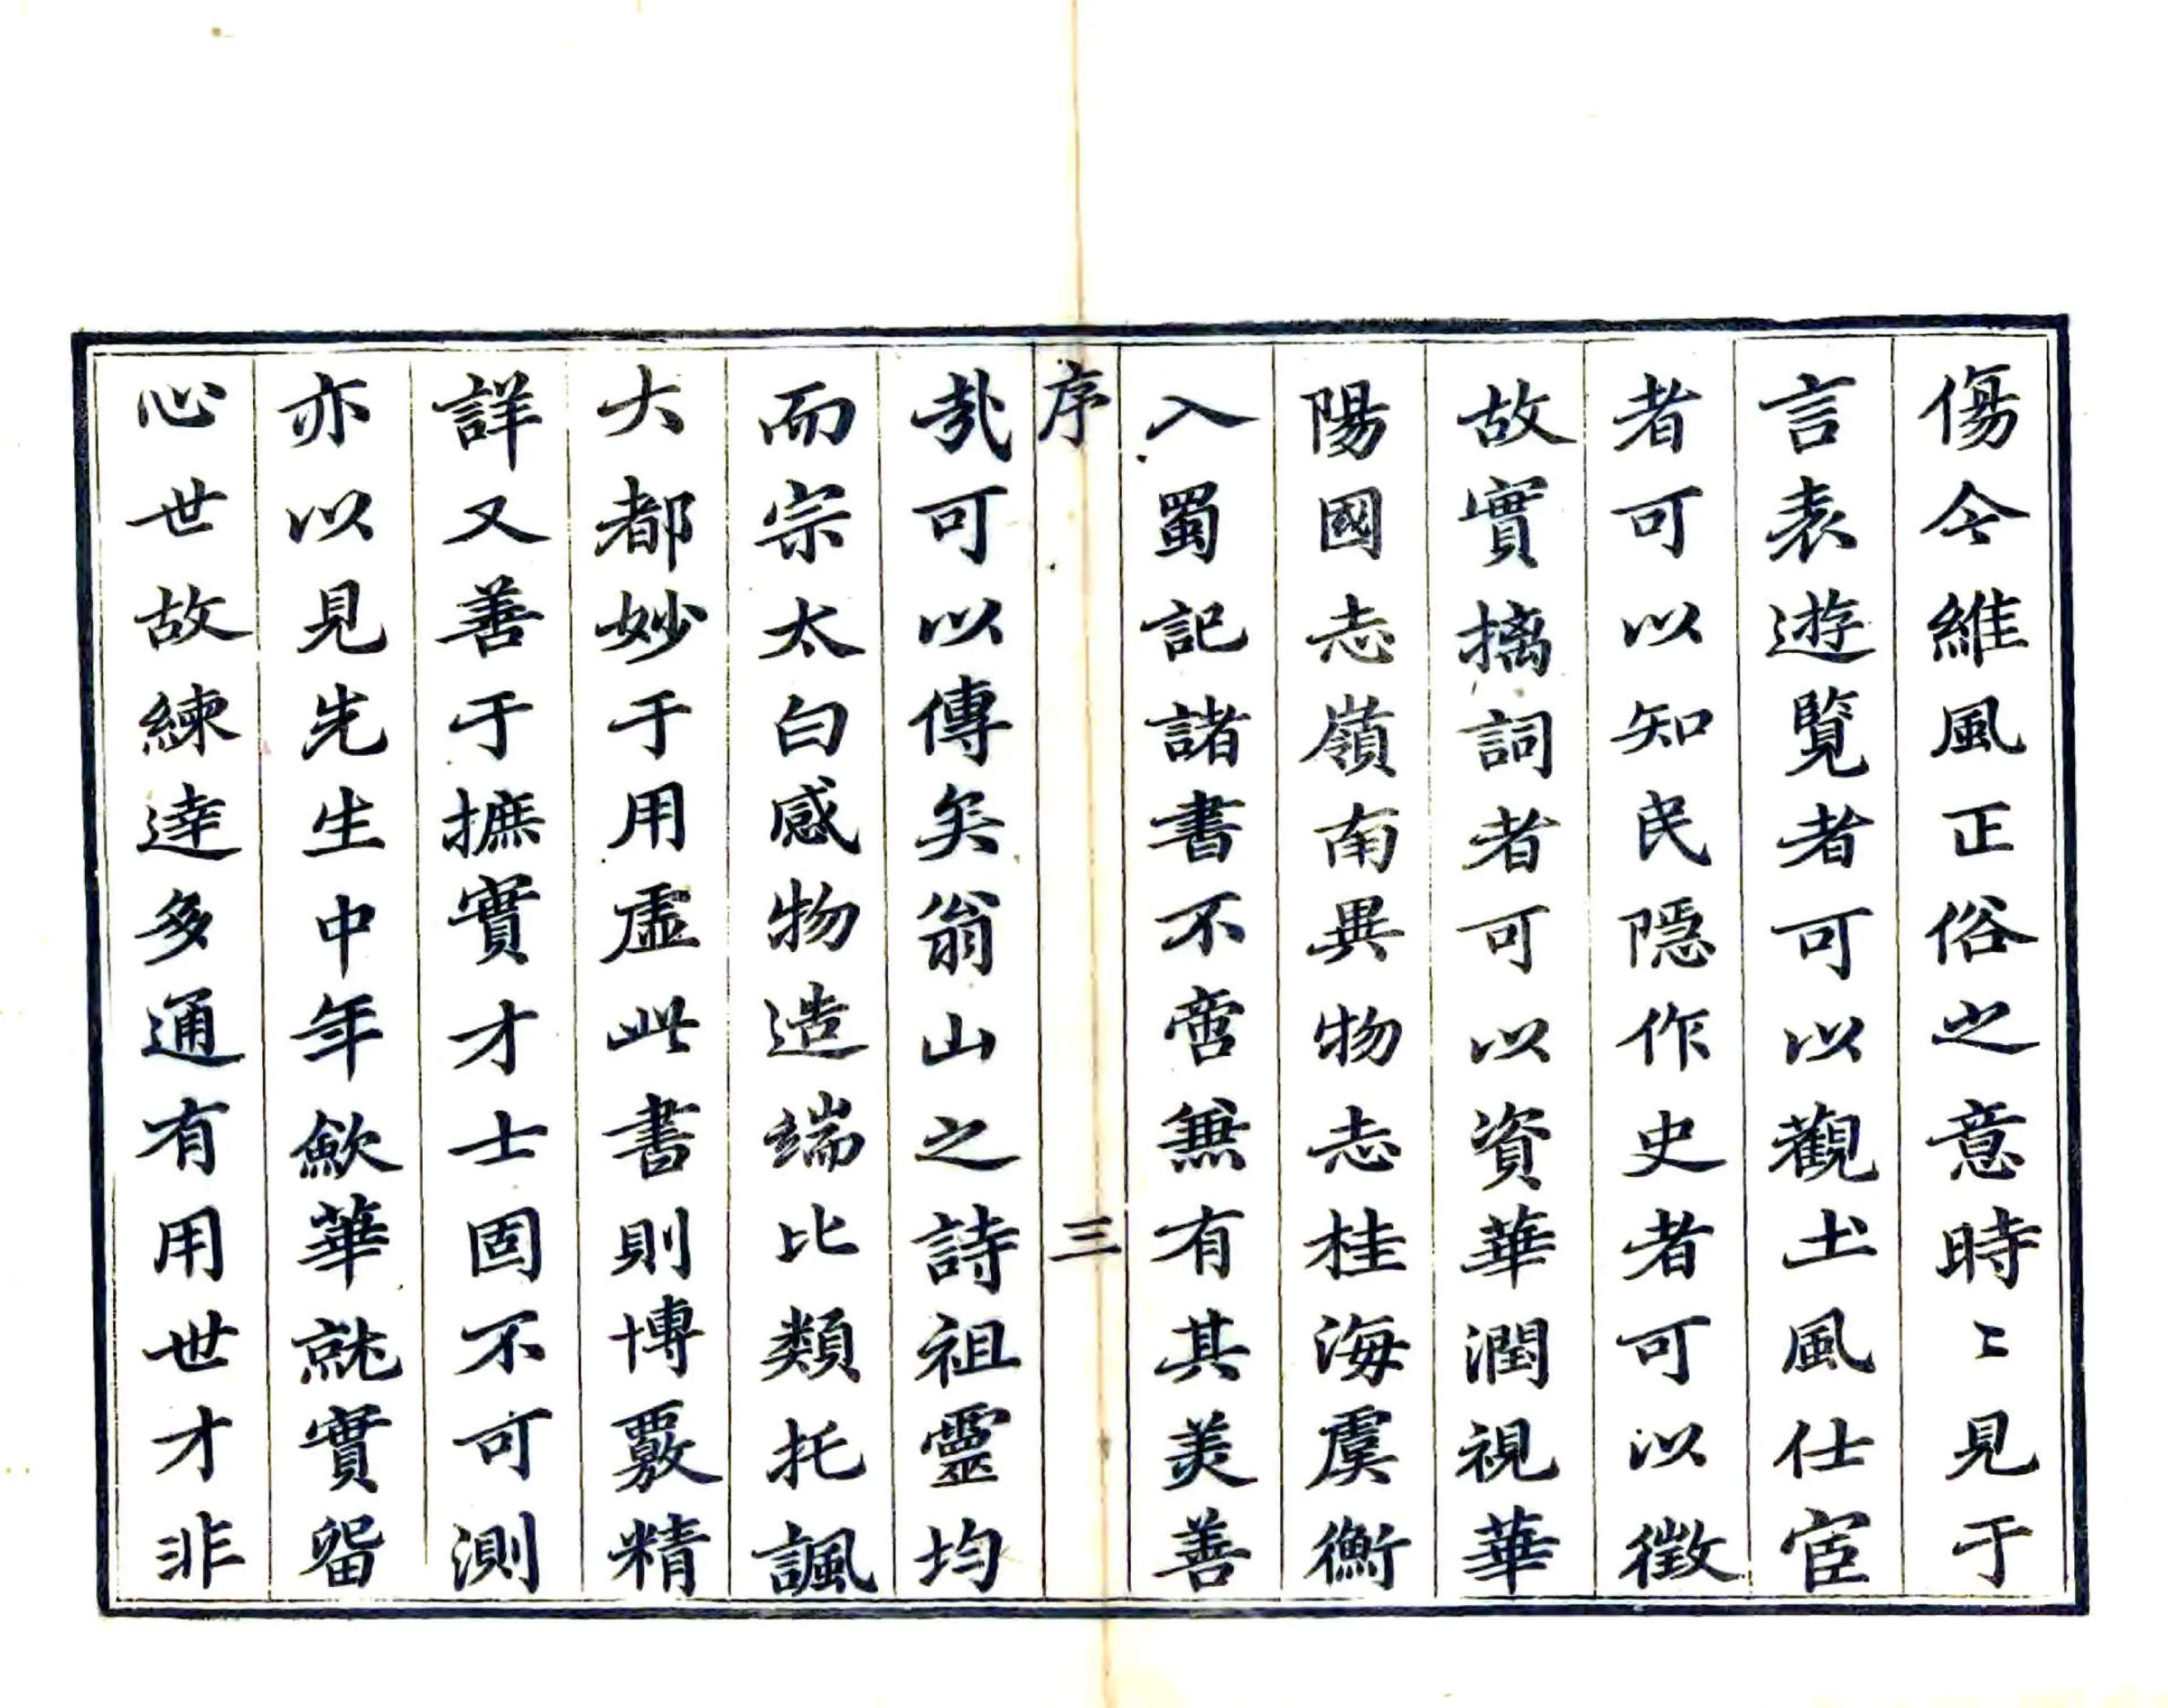 傷今維風正俗之意時〻見于
言表遊覽者可以觀土風仕宦
者可以知民隱作史者可以徵
故實摛詞者可以資華潤視華
陽國志嶺南異物志桂海虞衡
入蜀記諸書不啻兼有其美善
序 三
哉可以傳矣翁山之詩祖靈均
而宗太白感物造端比類托諷
大都妙于用虛此書則博覈精
詳又善于摭實才士固不可測
亦以見先生中年歛華就實留
心世故練達多通有用世才非